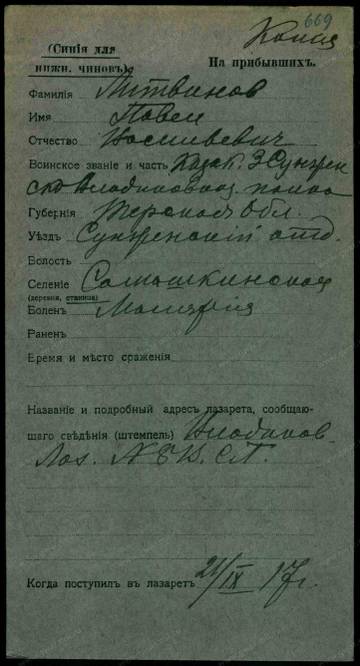 669
Копия
(Синія для
нижн. чиновъ).
На прибывшихъ.
Фамилія Литвинов
Имя Павел
Отчество Васильевич
Воинское званіе и часть Казак. 3 Сунжен
ско Владикавказ. полка
Губернія Терская Обл.
Уѣздъ Сунженскій отд.
Волость
Селеніе Самашкинская
(деревня, станица)
Боленъ Малярія
Раненъ
Время и мѣсто сраженія
Названіе и подробный адресъ лазарета, сообщаю-
щаго свѣдѣнія (штемпель) Владикав.
Лаз.
Когда поступилъ въ лазаретъ 21/IX 17 г.